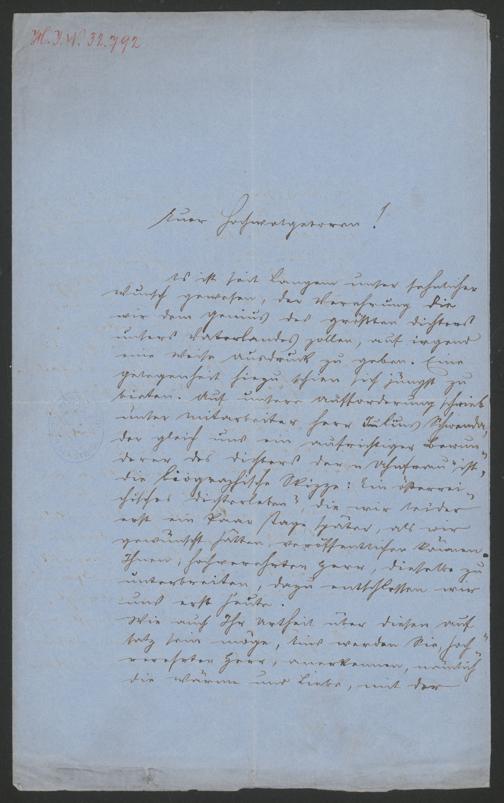 H.I.N. 32.792
Euer Hochwolgeboren!
Es ist seit Langem unser sehnlicher
Wunsch gewesen, der Verehrung die
wir dem Genius des größten Dichters
unsers Vaterlandes zollen, auf irgend
eine Weise Ausdruck zu geben. Eine
Gelegenheit hiezu schien sich jüngst zu
bieten. Auf unsere Aufforderung schrieb
unser Mitarbeiter Herr Julius Schwenda,
der gleich uns ein aufrichtiger Bewun-
derer des Dichters der „Ahnfrau" ist,
die biografische Skizze: „Ein österrei-
chisches Dichterleben", die wir leider
erst ein Paar Tage später, als wir
gewünscht hätten, veröffentlichen können.
Ihnen, hochverehrter Herr, dieselbe zu
unterbreiten, dazu entschlossen wir
uns erst heute.
Wie auch Ihr Urtheil über diesen Auf-
satz sein möge, Eins werden Sie, hoch-
verehrter Herr, anerkennen, nämlich
die Wärme und Liebe, mit der